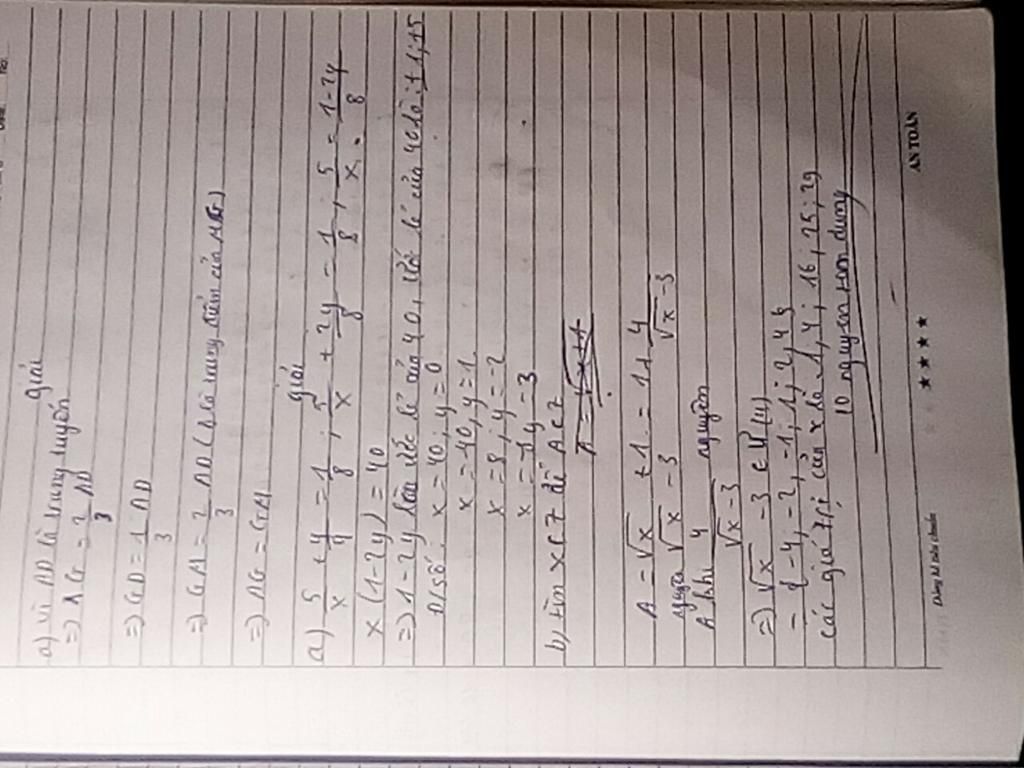 giải
a) vì AD là trung tuyến
=> AG = 2/3 AD
=> GD = 1/3 AD
=> GM = 2/3 AD (D là trung điểm của MG)
=> AG = GM
giải
a) 5/x + y/4 = 1/8 ; 5/x + 2y/8 = 1/8 ; 5/x = 1-2y/8
x(1-2y) = 40
=> 1-2y là ước lẻ của 40, ước lẻ của 40 là: ±1; ±5
Đ/số: x = 40, y = 0
x = -40, y = 1
x = 8, y = -2
x = -8, y = 3
b) tìm x ∈ Z để A ∈ Z
A = √x + 1/√x - 3 = 1 + 4/√x - 3
A khi 4/√x - 3 nguyên
=> √x - 3 ∈ Ư(4)
= {-4, -2, -1, 1; 2, 4}
các giá trị của x là 1, 4; 16, 25; 49
10 nguyen dung
Dòng kẻ tiêu chuẩn
★★★★
AN TOÀN